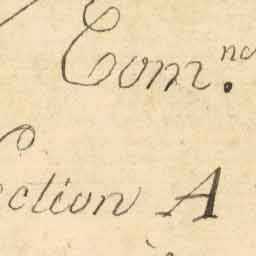 Com.nd
ection A